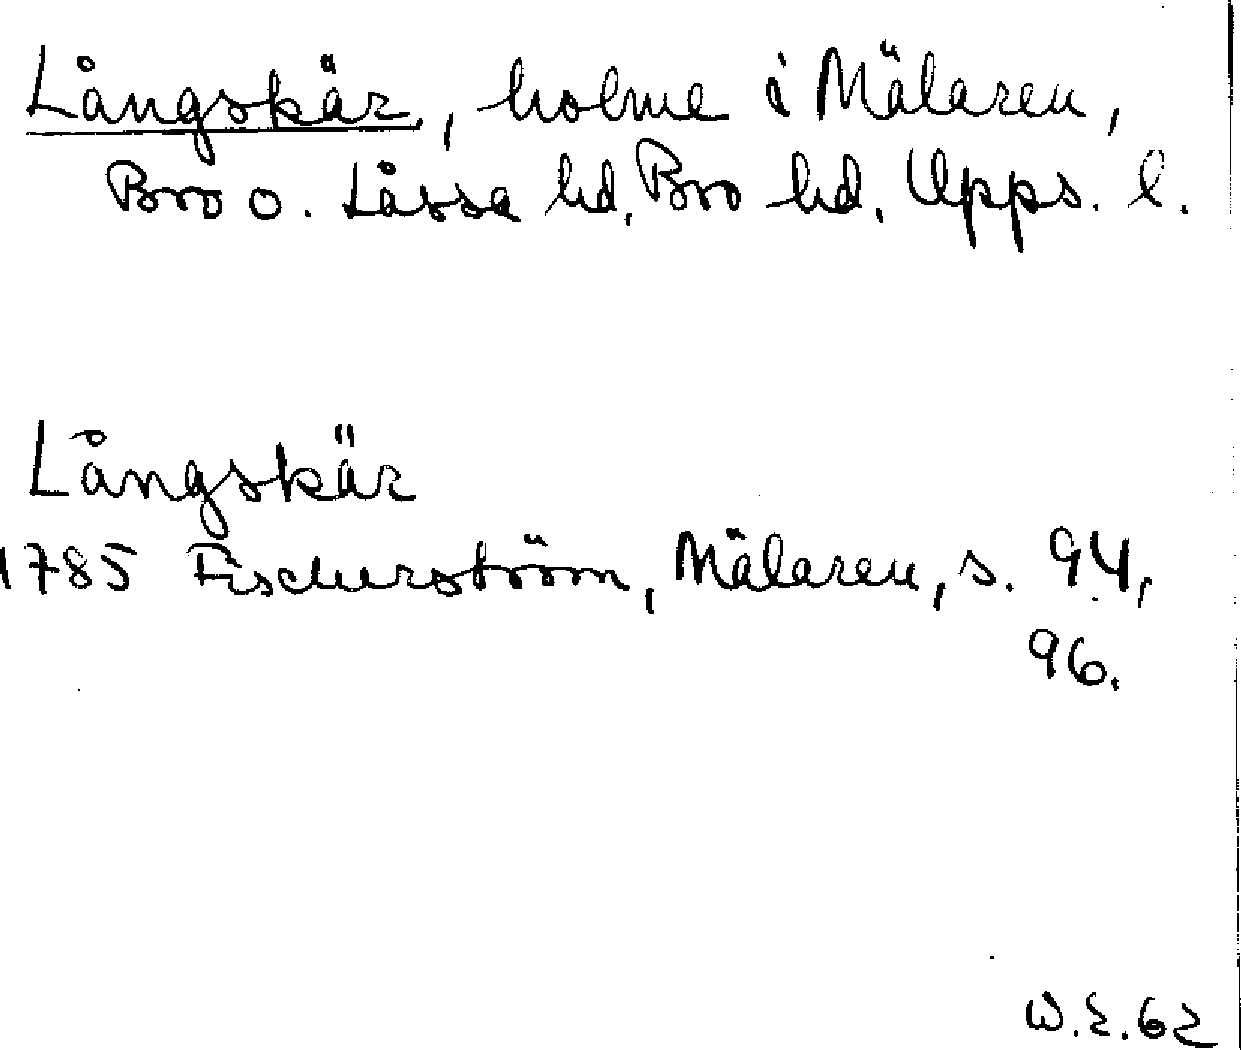 Långskär, holme i Mälaren,
Bro o. Låssa hd, Bro hd, Upps. l.
Långskär
1785 Fischerström, Mälaren, s. 94,
96.
W.E.62